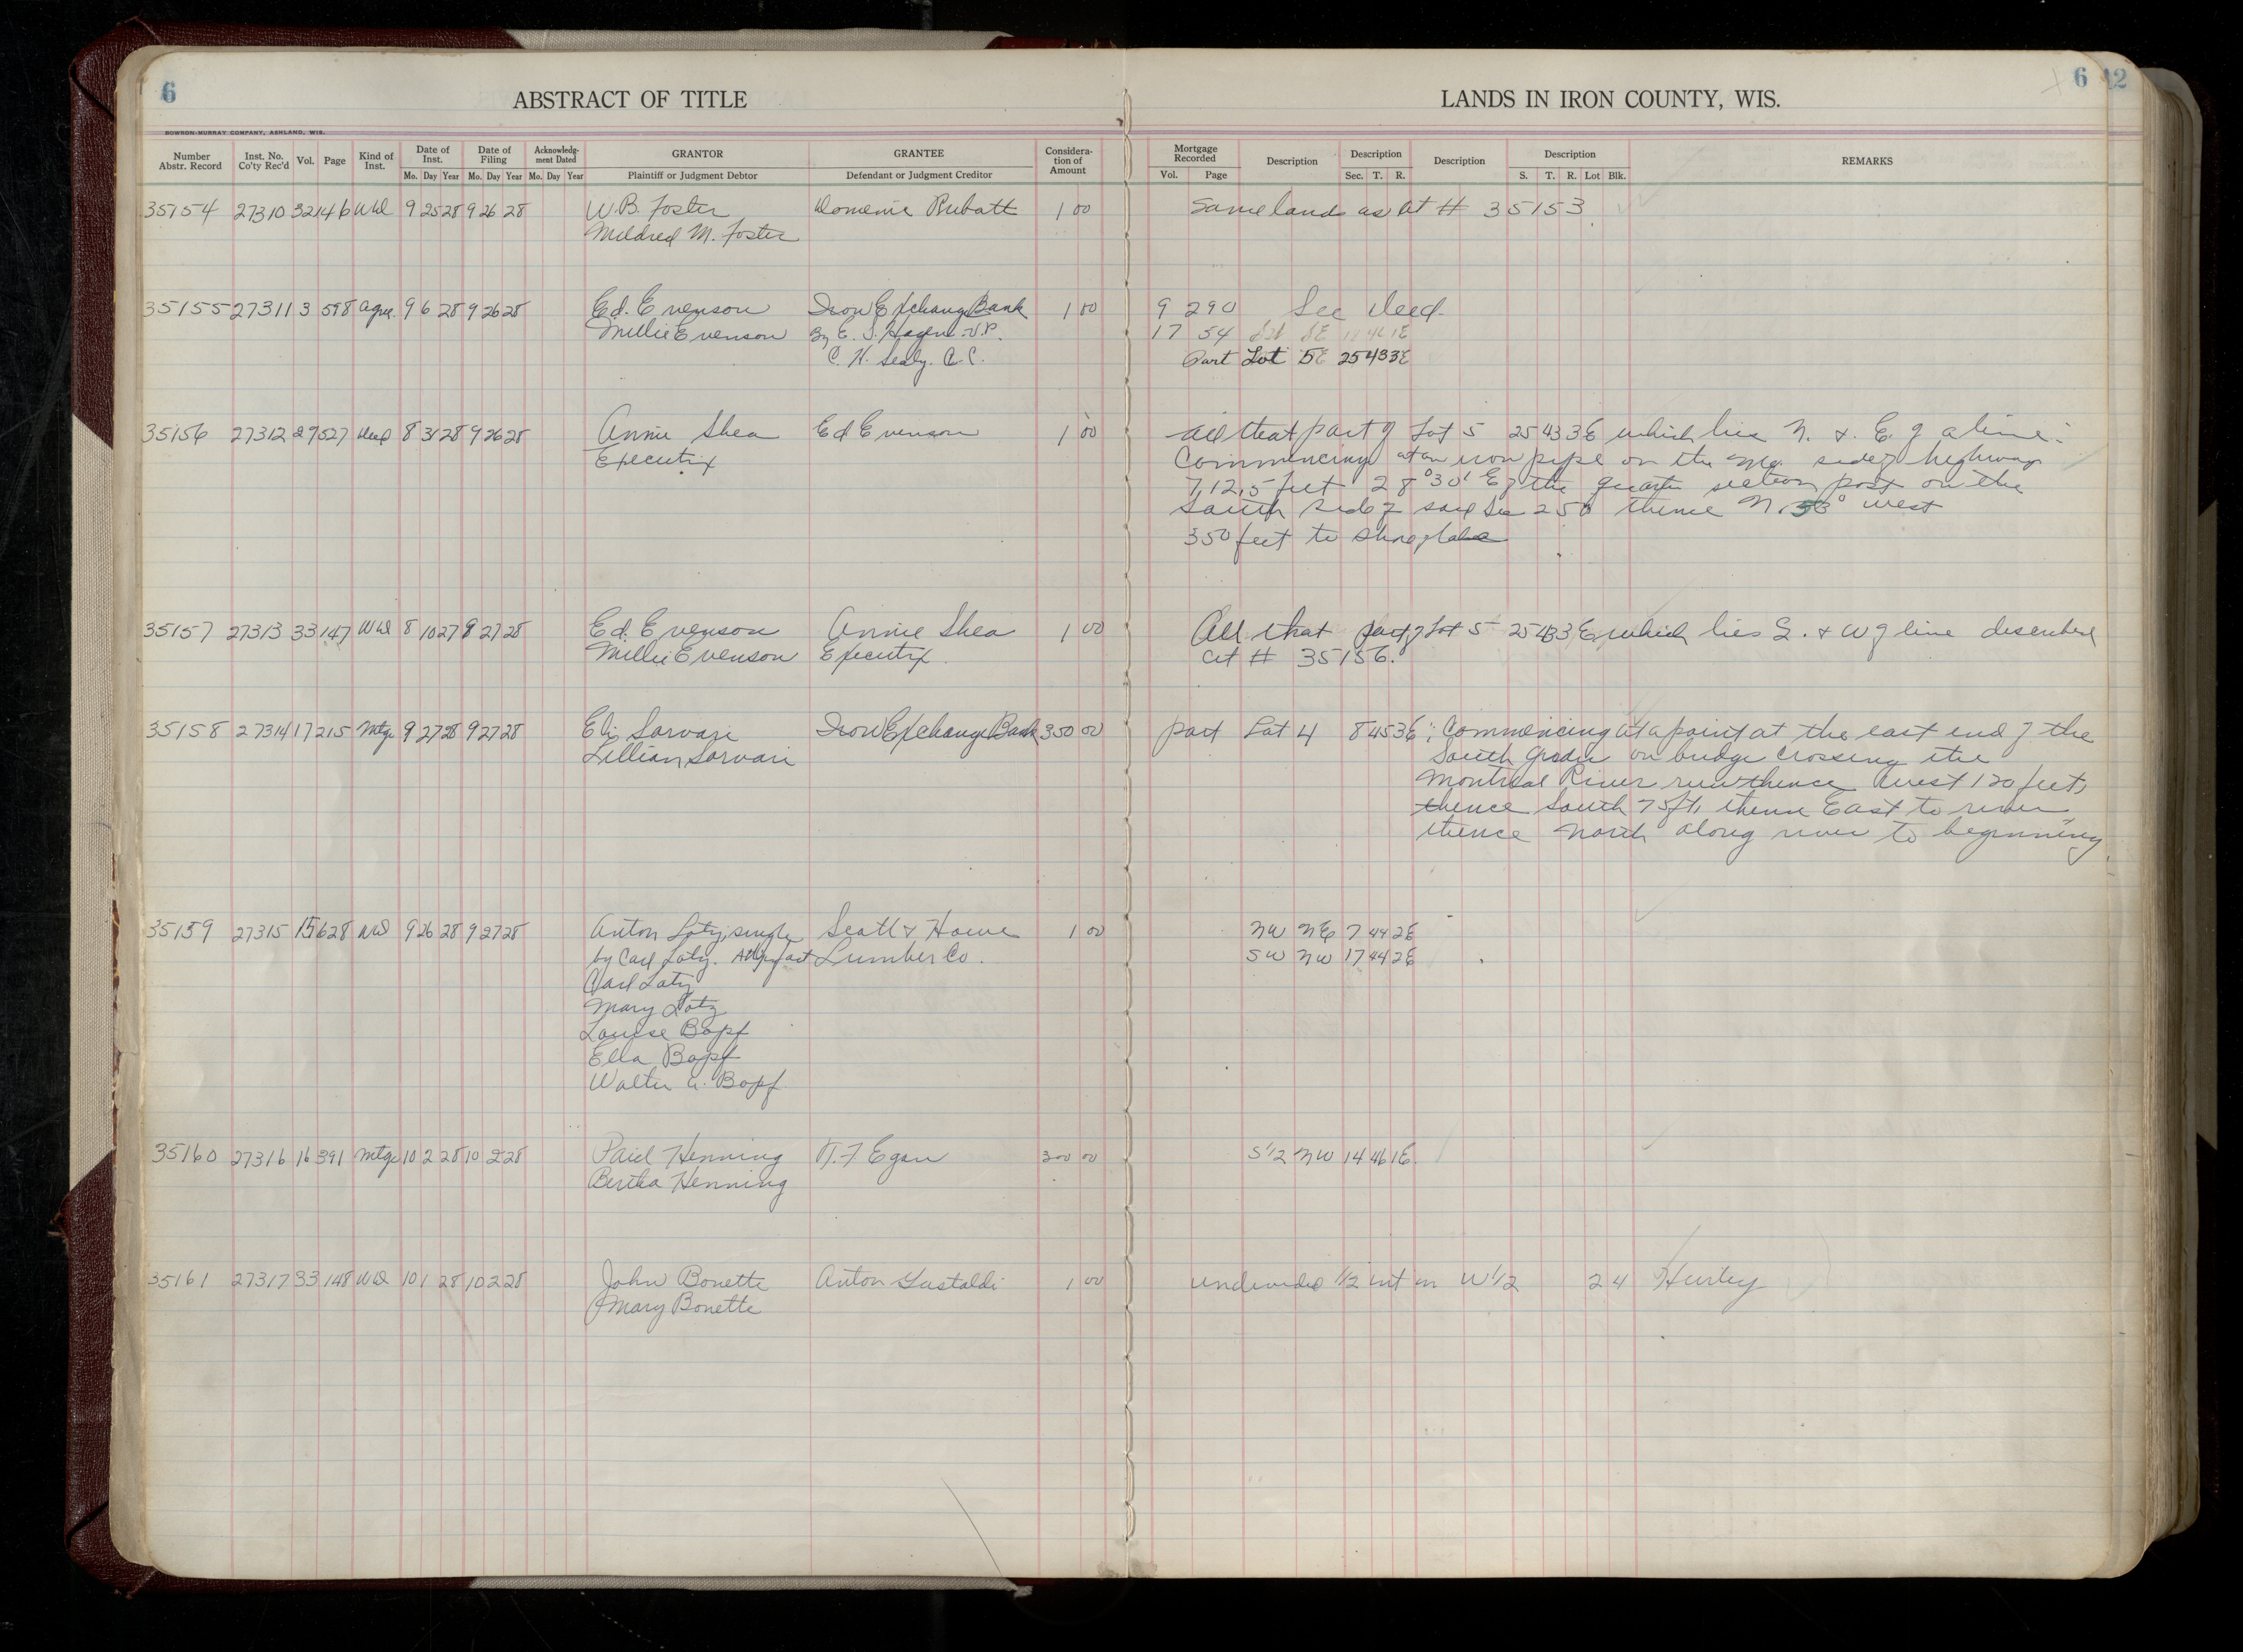 6
ABSTRACT OF TITLE
LANDS IN IRON COUNTY, WIS.
6 12
BOWRON-MURRAY COMPANY, ASHLAND, WIS.
Number Abstr. Record Inst. No. Co'ty Rec'd Vol. Page Kind of Inst. Date of Inst. Date of Filing Acknowledg-ment Dated GRANTOR GRANTEE Considera-tion of Amount Mortgage Recorded Description Description Description Description REMARKS
Mo. Day Year Mo. Day Year Mo. Day Year Plaintiff or Judgment Debtor Defendant or Judgment Creditor Vol. Page Sec. T. R. S. T. R. Lot Blk.
35154 27310 32 146 WD 9 25 28 9 26 28 W.B. Foster Domenic Rubatt 1 00 Same lands as at # 35153
Mildred M. Foster
35155 27311 3 598 Agree 9 6 28 9 26 28 Ed. Evenson Iron Exchange Bank 1 00 9 290 See Deed
Millie Evenson By E. S. Hagen V.P. 17 54 SE 46 1E
C. H. Sealy. A.C. Part Lot 5 25 43 3E
35156 27312 27 527 Deed 8 31 28 9 26 28 Annie Shea Ed Evenson 1 00 All that part of Lot 5 25 43 3E which lies N. & E. of a line:
Executrix Commencing at an iron pipe on the side of highway
712.5 feet 28° 30' E of the quarter section post on the
South side of said Sec 25 thence N. 53° west
350 feet to shore of lake
35157 27313 33 147 WD 8 10 27 9 27 28 Ed. Evenson Annie Shea 1 00 All that part of Lot 5 25 43 3E which lies S. & W of line described
Millie Evenson Executrix. at # 35156.
35158 27314 17 215 Mtge 9 27 28 9 27 28 Eli Sarvari Iron Exchange Bank 350 00 part Lot 4 8 45 3E; Commencing at a point at the east end of the
Lillian Sarvari South on bridge crossing the
Montreal River run thence West 120 feet,
thence South 75 ft, thence East to river
thence North along river to beginning
35159 27315 15 628 WD 9 26 28 9 27 28 Anton Lotz, single Scott & Howe 1 00 NW NE 7 44 2E
by Carl Lotz. Atty in fact Lumber Co. SW NW 17 44 2E
Carl Lotz
Mary Lotz
Louise Bopf
Ella Bopf
Walter A. Bopf
35160 27316 16 391 Mtge 10 2 28 10 2 28 Paul Henning N. F Egan 300 00 S1/2 NW 14 46 1E.
Bertha Henning
35161 27317 33 148 WD 10 1 28 10 2 28 John Bonette Anton Gastaldi 1 00 undivided 1/2 int in W1/2 24 Hurley
Mary Bonette